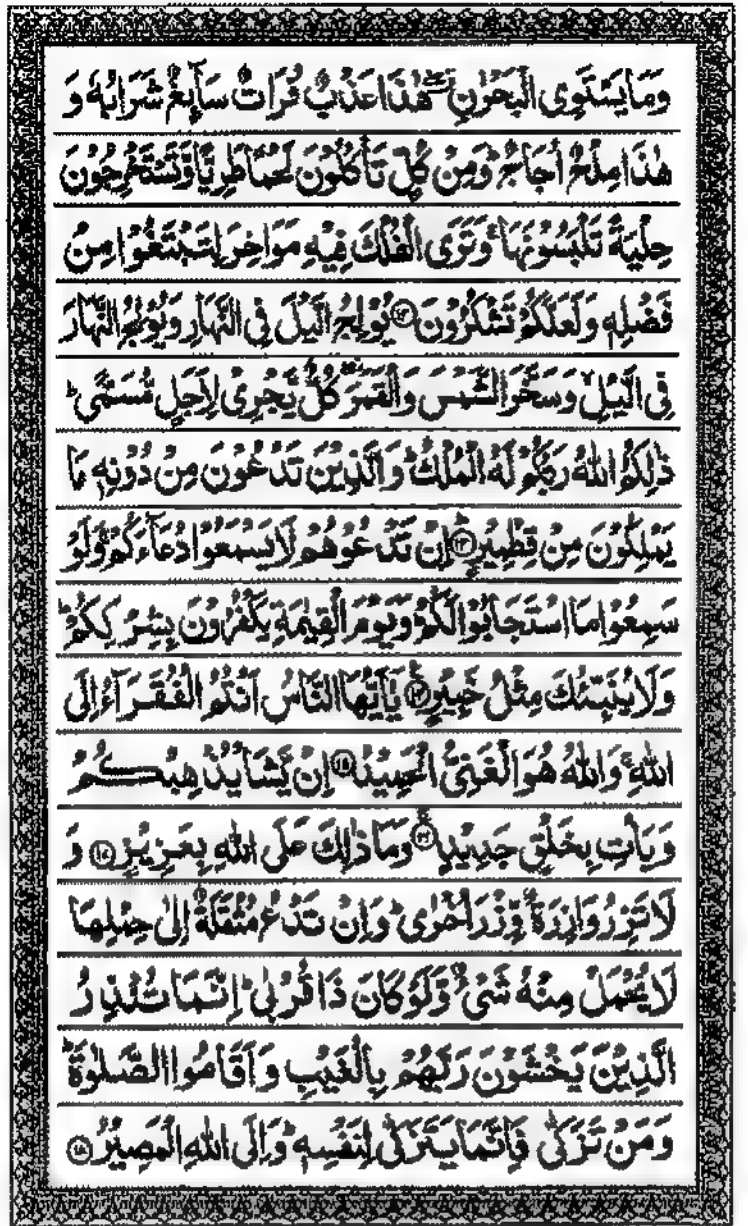 وَمَا يَسْتَوِي الْبَحْرٰنِ ۖ هٰذَا عَذْبٌ فُرَاتٌ سَآئِغٌ شَرَابُهٗ وَ
هٰذَا مِلْحٌ اُجَاجٌ ؕ وَمِنْ كُلٍّ تَاْكُلُوْنَ لَحْمًا طَرِيًّا وَّتَسْتَخْرِجُوْنَ
حِلْيَةً تَلْبَسُوْنَهَا ۚ وَتَرَى الْفُلْكَ فِيْهِ مَوَاخِرَ لِتَبْتَغُوْا مِنْ
فَضْلِهٖ وَلَعَلَّكُمْ تَشْكُرُوْنَ ﴿۱۲﴾ يُوْلِجُ الَّيْلَ فِي النَّهَارِ وَيُوْلِجُ النَّهَارَ
فِي الَّيْلِ ۙ وَسَخَّرَ الشَّمْسَ وَالْقَمَرَ ۖ كُلٌّ يَّجْرِيْ لِاَجَلٍ مُّسَمًّى ؕ
ذٰلِكُمُ اللّٰهُ رَبُّكُمْ لَهُ الْمُلْكُ ؕ وَالَّذِيْنَ تَدْعُوْنَ مِنْ دُوْنِهٖ مَا
يَمْلِكُوْنَ مِنْ قِطْمِيْرٍ ﴿۱۳﴾ اِنْ تَدْعُوْهُمْ لَا يَسْمَعُوْا دُعَآءَكُمْ ۚ وَلَوْ
سَمِعُوْا مَا اسْتَجَابُوْا لَكُمْ ؕ وَيَوْمَ الْقِيٰمَةِ يَكْفُرُوْنَ بِشِرْكِكُمْ ؕ
وَلَا يُنَبِّئُكَ مِثْلُ خَبِيْرٍ ﴿۱۴﴾ يٰۤاَيُّهَا النَّاسُ اَنْتُمُ الْفُقَرَآءُ اِلَى
اللّٰهِ ۚ وَاللّٰهُ هُوَ الْغَنِيُّ الْحَمِيْدُ ﴿۱۵﴾ اِنْ يَّشَاْ يُذْهِبْكُمْ
وَيَاْتِ بِخَلْقٍ جَدِيْدٍ ﴿۱۶﴾ وَمَا ذٰلِكَ عَلَى اللّٰهِ بِعَزِيْزٍ ﴿۱۷﴾ وَ
لَا تَزِرُ وَازِرَةٌ وِّزْرَ اُخْرٰى ؕ وَاِنْ تَدْعُ مُثْقَلَةٌ اِلٰى حِمْلِهَا
لَا يُحْمَلْ مِنْهُ شَيْءٌ وَّلَوْ كَانَ ذَا قُرْبٰى ؕ اِنَّمَا تُنْذِرُ
الَّذِيْنَ يَخْشَوْنَ رَبَّهُمْ بِالْغَيْبِ وَاَقَامُوا الصَّلٰوةَ ؕ
وَمَنْ تَزَكّٰى فَاِنَّمَا يَتَزَكّٰى لِنَفْسِهٖ ؕ وَاِلَى اللّٰهِ الْمَصِيْرُ ﴿۱۸﴾